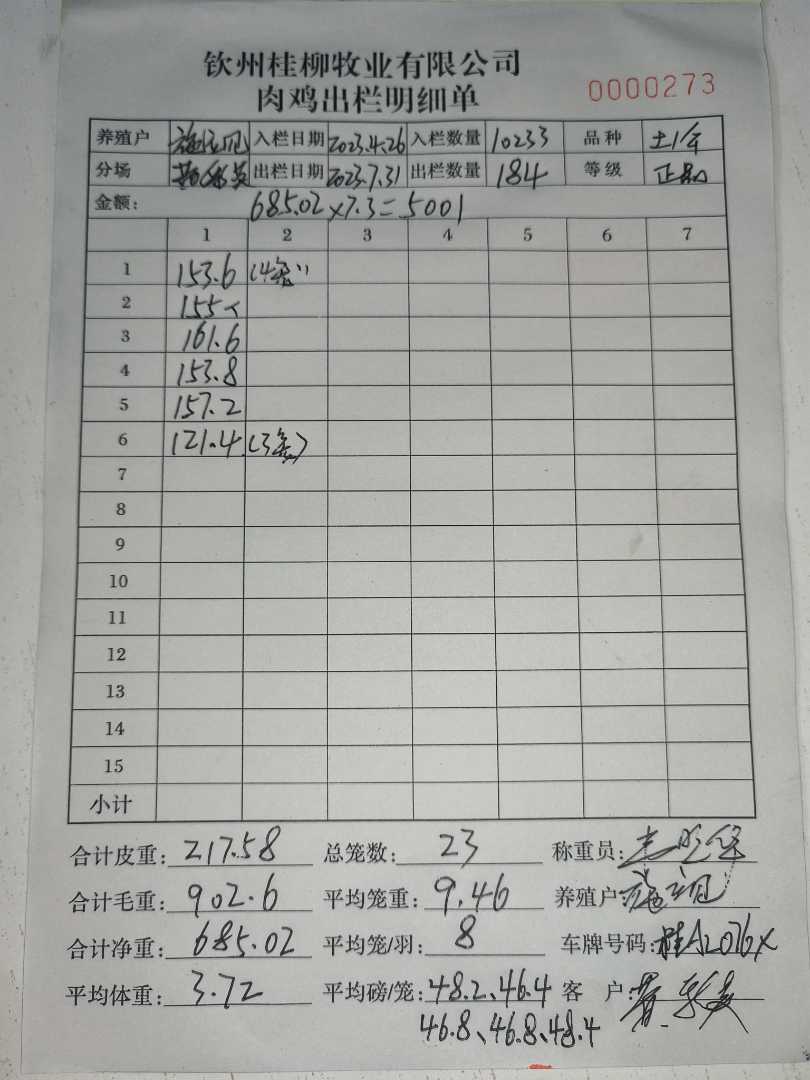 钦州桂柳牧业有限公司
肉鸡出栏明细单 0000273
养殖户 入栏日期 2023.4.26 入栏数量 10233 品种 土1年
分场 出栏日期 2023.7.31 出栏数量 184 等级 正品
金额: 685.02×7.3=5001
1 2 3 4 5 6 7
1 153.6 (4条)
2 155
3 161.6
4 153.8
5 157.2
6 121.4 (3条)
7
8
9
10
11
12
13
14
15
小计
合计皮重: 217.58 总笼数: 23 称重员:
合计毛重: 902.6 平均笼重: 9.46 养殖户:
合计净重: 685.02 平均笼/羽: 8 车牌号码: 桂A2076X
平均体重: 3.72 平均磅/笼: 48.2、46.4 客 户:
46.8、46.8、48.4